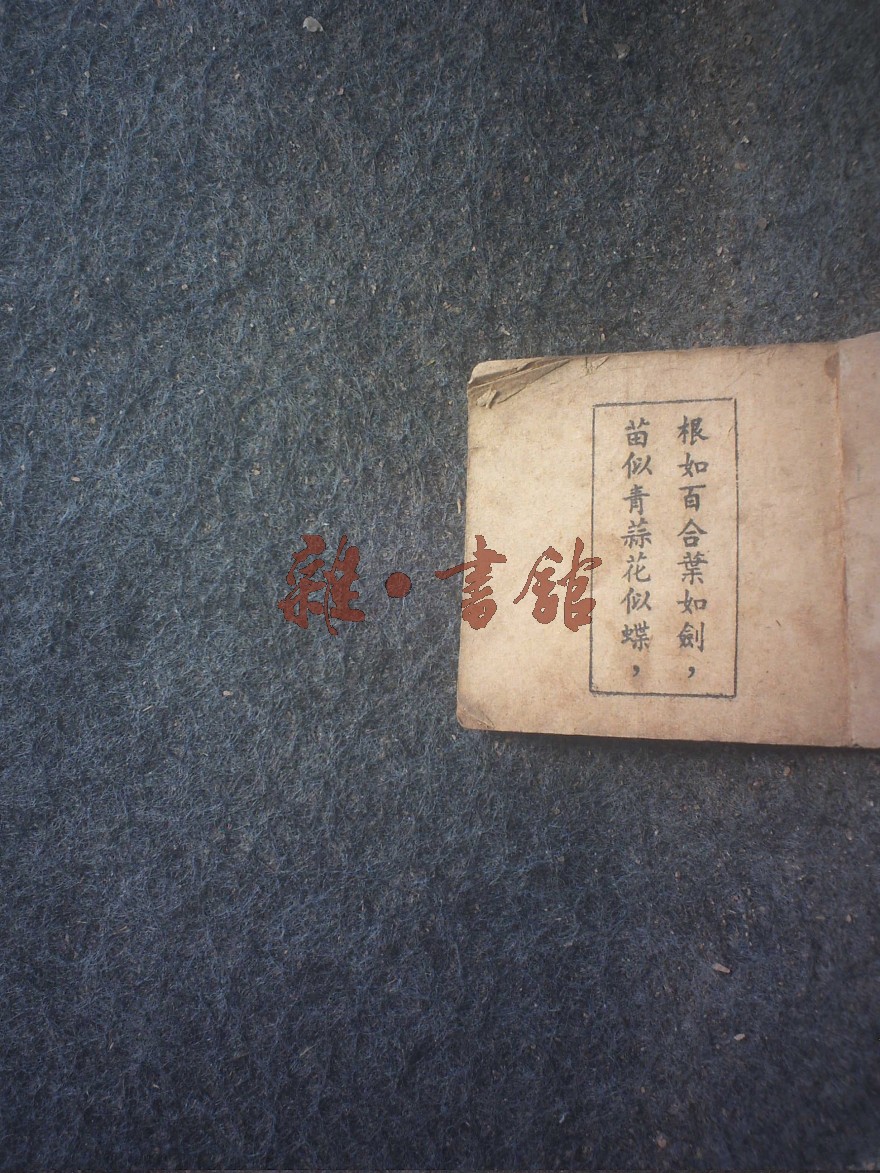 根如百合葉如劍，
苗似青蒜花似蝶，
雜·書館